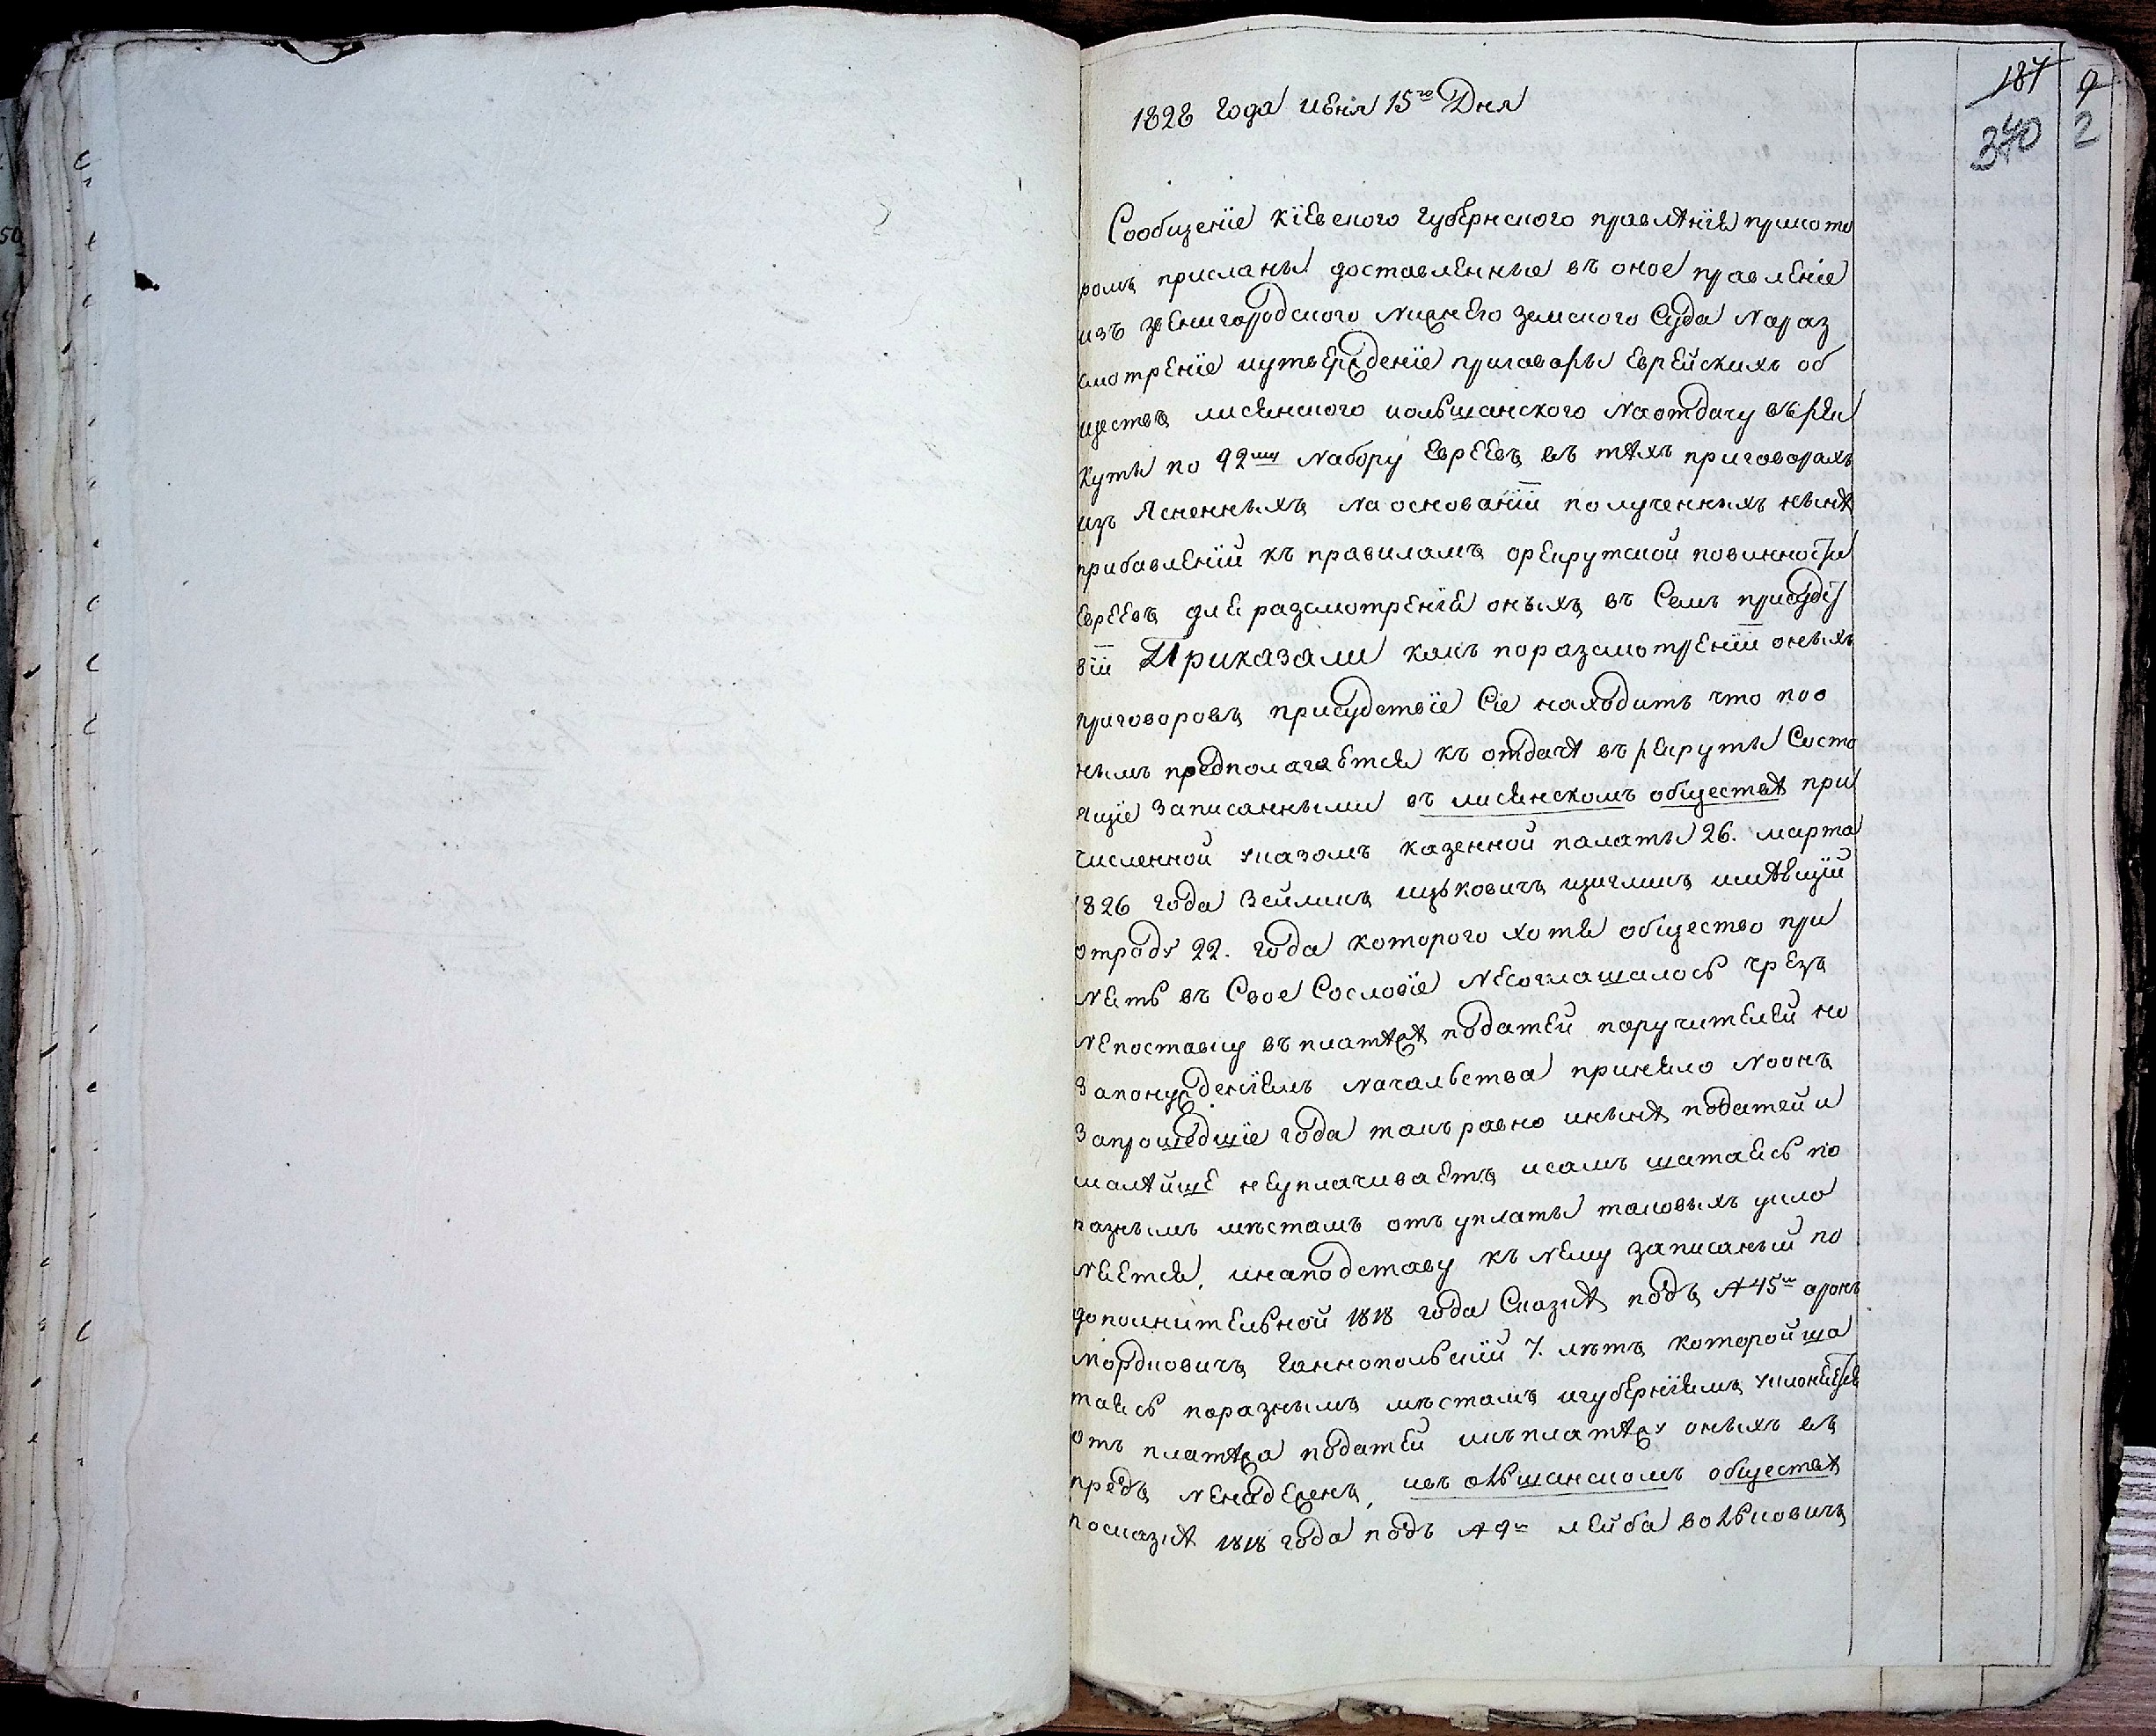 187 9
340 2
1828 года июня 15го Дня
Сообщеніе кіевского губернского правлѣнія прикото
ромъ присланы доставленные въ оное правленіе
изъ звенигородского нижнего земского Суда на раз
смотреніе иутвержденіе приговоры Еврейскихъ об
ществъ лисянского иольшанского наотдачу въ рек
руты по 92му набору Евреевъ въ тѣхъ приговорахъ
изъ Ясненныхъ на основаніи полученныхъ нынѣ
прибавленій къ правиламъ орекрутской повинности
Евреевъ для разсмотренія оныхъ въ Семъ присудст
віи Приказали какъ поразсмотреніи оныхъ
приговоровъ присудствіе Сіе находитъ что поо
нымъ предполагается къ отдачѣ въ рекруты Состо
ящіе Записанными въ лисянскомъ обществѣ при
численной указомъ казенной палаты 26. марта
1826 года Зейликъ ицковичъ имѣвщій
отроду 22. года которого хотя общество при
нять въ Свое Сословіе несоглашалось чрезъ
непоставку въплатѣжѣ податей поручителей но
Запонужденіемъ начальства приняло ноонъ
Запрошедшіе года такъ равно инынѣ податей и
малѣйше неуплачиваетъ исамъ шатаясь по
разнымъ мѣстамъ отъ уплаты таковыхъ укло
няется, инаподставу къ нему записаный по
дополнительной 1818 года Сказкѣ подъ № 45м аронъ
мордковичъ ганнопольскій 7. лѣтъ которой ша
таясь поразнымъ мѣстамъ игуберніямъ уклоняется
отъ платѣжа податей икъплатѣжу оныхъ въ
предъ ненадеженъ, ивъ ольшанскомъ обществѣ
посказкѣ 1818 года подъ № 9м лейба волковичъ